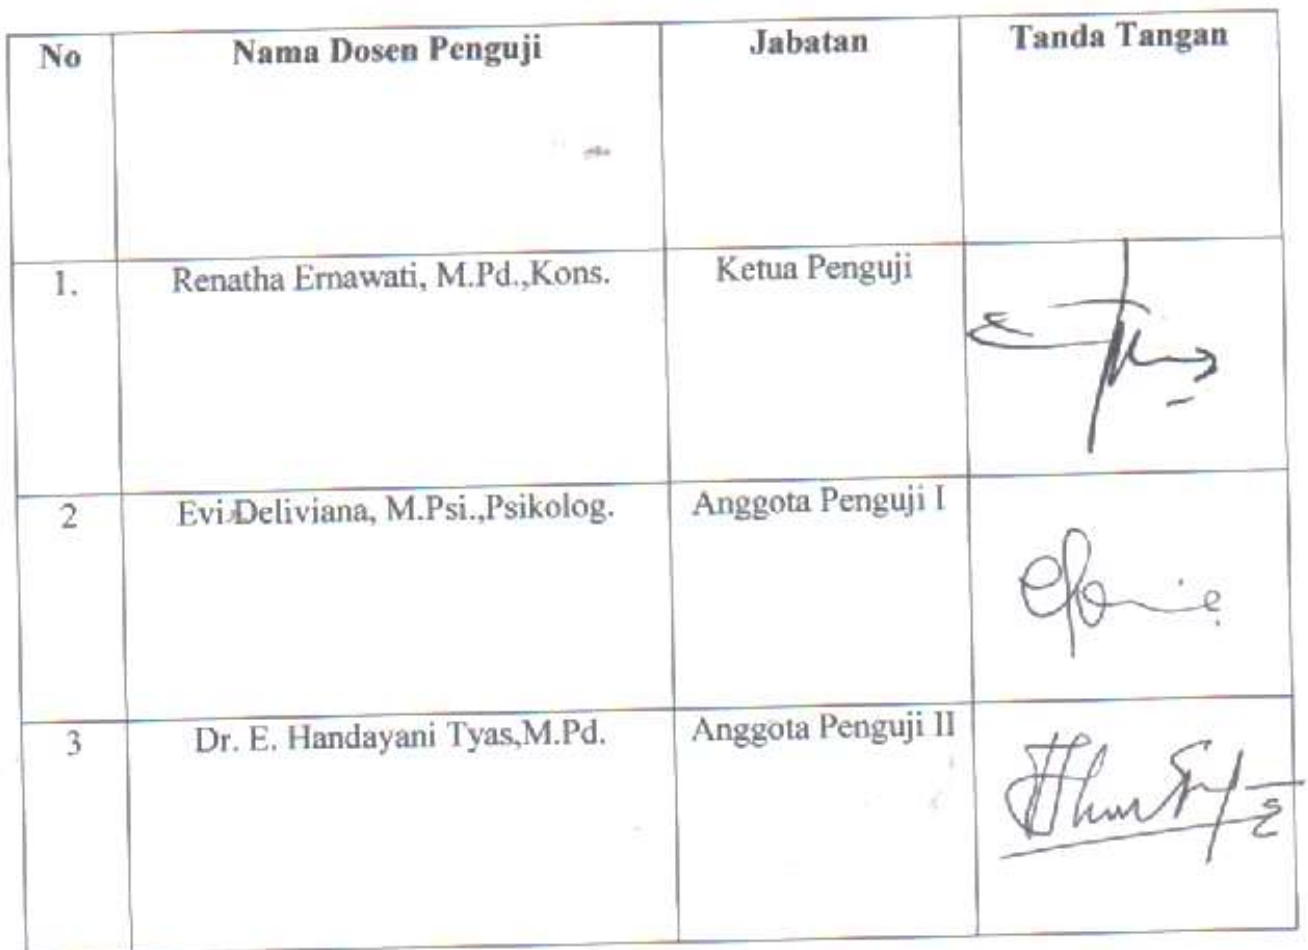 No Nama Dosen Penguji Jabatan Tanda Tangan
1. Renatha Ernawati, M.Pd.,Kons. Ketua Penguji
2 Evi Deliviana, M.Psi.,Psikolog. Anggota Penguji I
3 Dr. E. Handayani Tyas,M.Pd. Anggota Penguji II